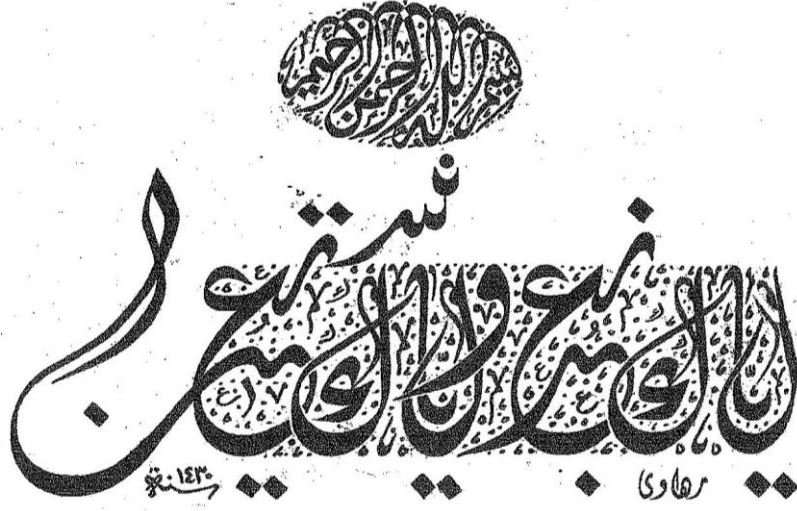 بسم الله الرحمن الرحيم
اياك نعبد واياك نستعين
سنة ١٤٣٠